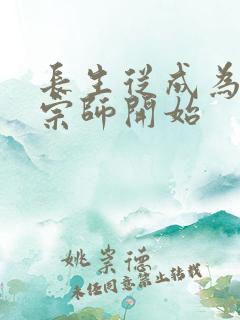 長生從成為
宗師開始
姚崇德
未經同意禁止轉載